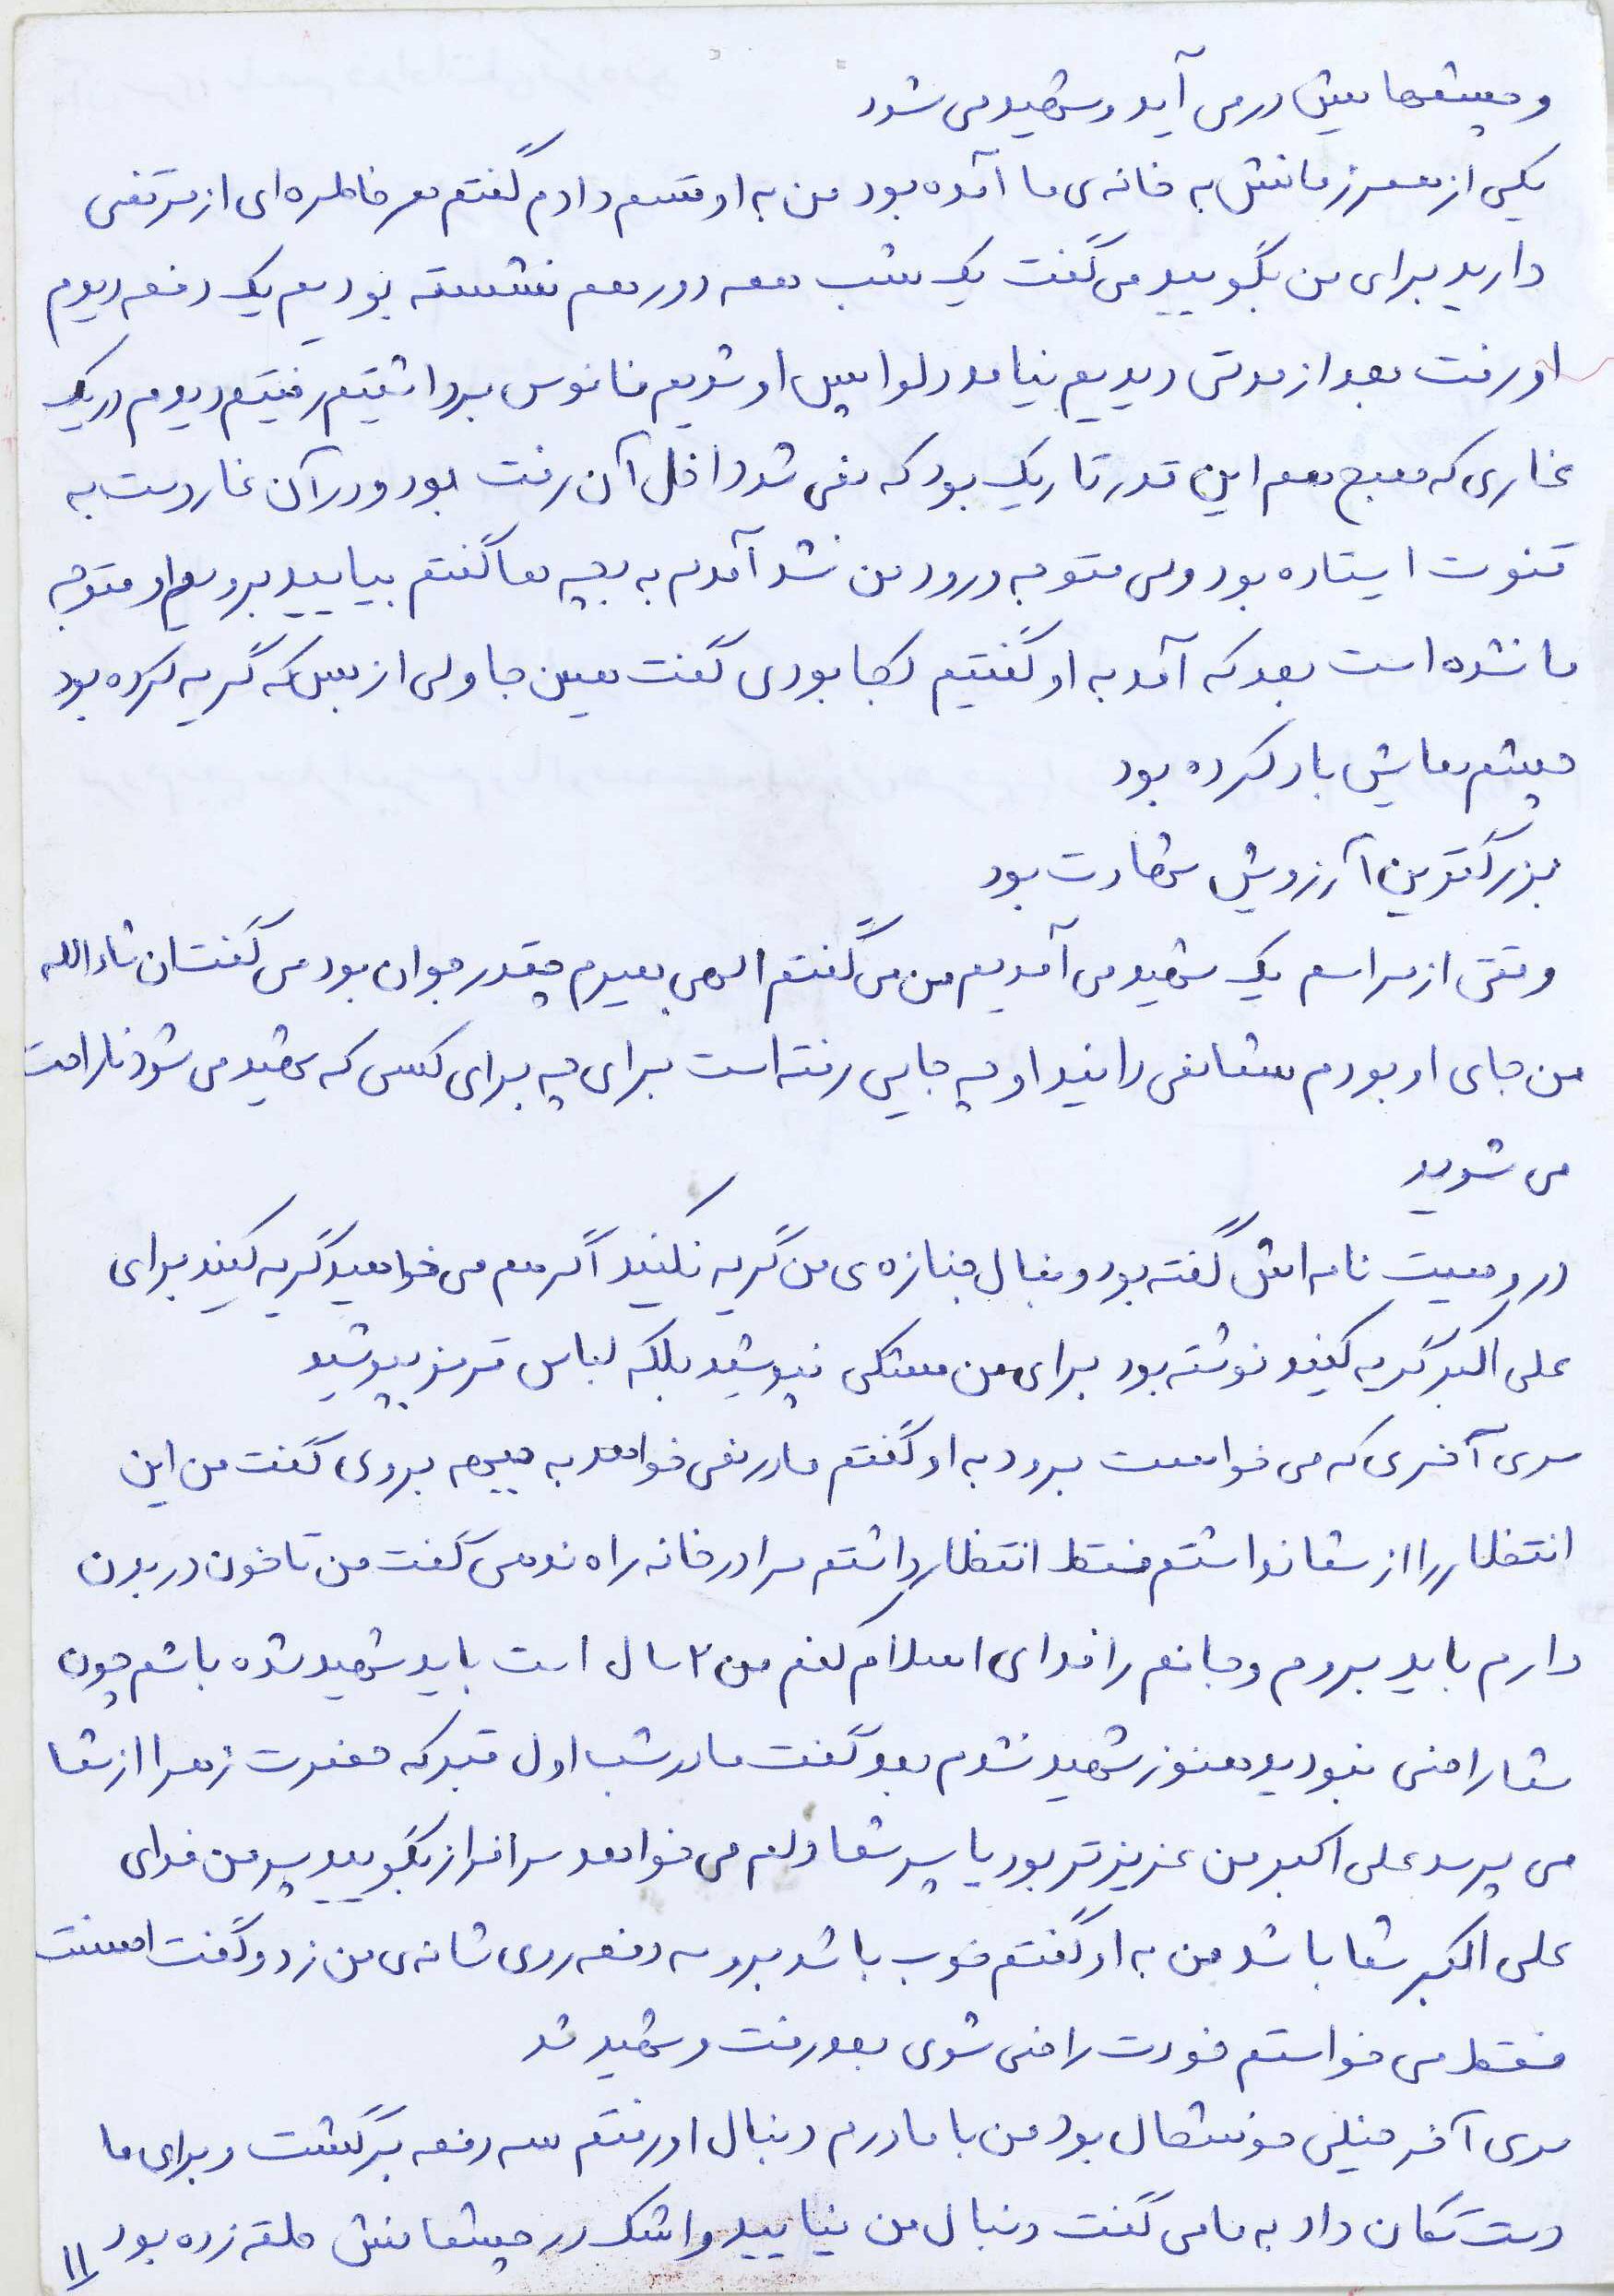 و چشمهایش در می آید و شهید می شود
یکی از همرزمانش به خانه ی ما آمده بود من به او قسم دادم گفتم هر خاطره ای از مرتضی
دارید برای من بگویید می گفت یک شب همه دور هم نشسته بودیم یک دفعه دیدم
او رفت بعد از مدتی دیدیم نیامد دلواپس او شدیم فانوس برداشتیم رفتیم دیدم در یک
غاری که صبح هم این قدر تاریک بود که نمی شد داخل آن رفت بود و در آن غار دست به
قنوت ایستاده بود ولی متوجه ورود من نشد آمدم به بچه ها گفتم بیایید برویم او متوجه
ما نشده است بعد که آمد به او گفتیم کجا بودی گفت همین جا ولی از بس که گریه کرده بود
چشم هایش باد کرده بود
بزرگترین آرزویش شهادت بود
وقتی از مراسم یک شهید می آمدیم من می گفتم الهی بمیرم چقدر جوان بود می گفت ان شاء الله
من جای او بودم شما نمی دانید او چه جایی رفته است برای چه برای کسی که شهید می شود ناراحت
می شوید
در وصیت نامه اش گفته بود دنبال جنازه ی من گریه نکنید اگر هم می خواهید گریه کنید برای
علی اکبر گریه کنید نوشته بود برای من مشکی نپوشید بلکه لباس قرمز بپوشید
سری آخری که می خواست برود به او گفتم مادر نمی خواهد به جبهه بروی گفت من این
انتظار را از شما نداشتم فقط انتظار داشتم مرا در خانه راه ندهی گفت من تا خون در بدن
دارم باید بروم و جانم را فدای اسلام کنم من ۲ سال است باید شهید شده باشم چون
شما راضی نبودید هنوز شهید نشدم بعد گفت مادر شب اول قبر که حضرت زهرا از شما
می پرسد علی اکبر من عزیزتر بود یا پسر شما دلم می خواهد سرافراز بگویید پسر من فدای
علی اکبر شما باشد من به او گفتم خوب باشد برو سه دفعه روی شانه ی من زد و گفت احسنت
فقط می خواستم خودت راضی شوی بعد رفت و شهید شد
سری آخر خیلی خوشحال بود من با مادرم دنبال او رفتم سه دفعه برگشت و برای ما
دست تکان داد به ما می گفت دنبال من نیایید و اشک در چشمانش حلقه زده بود
۱۱